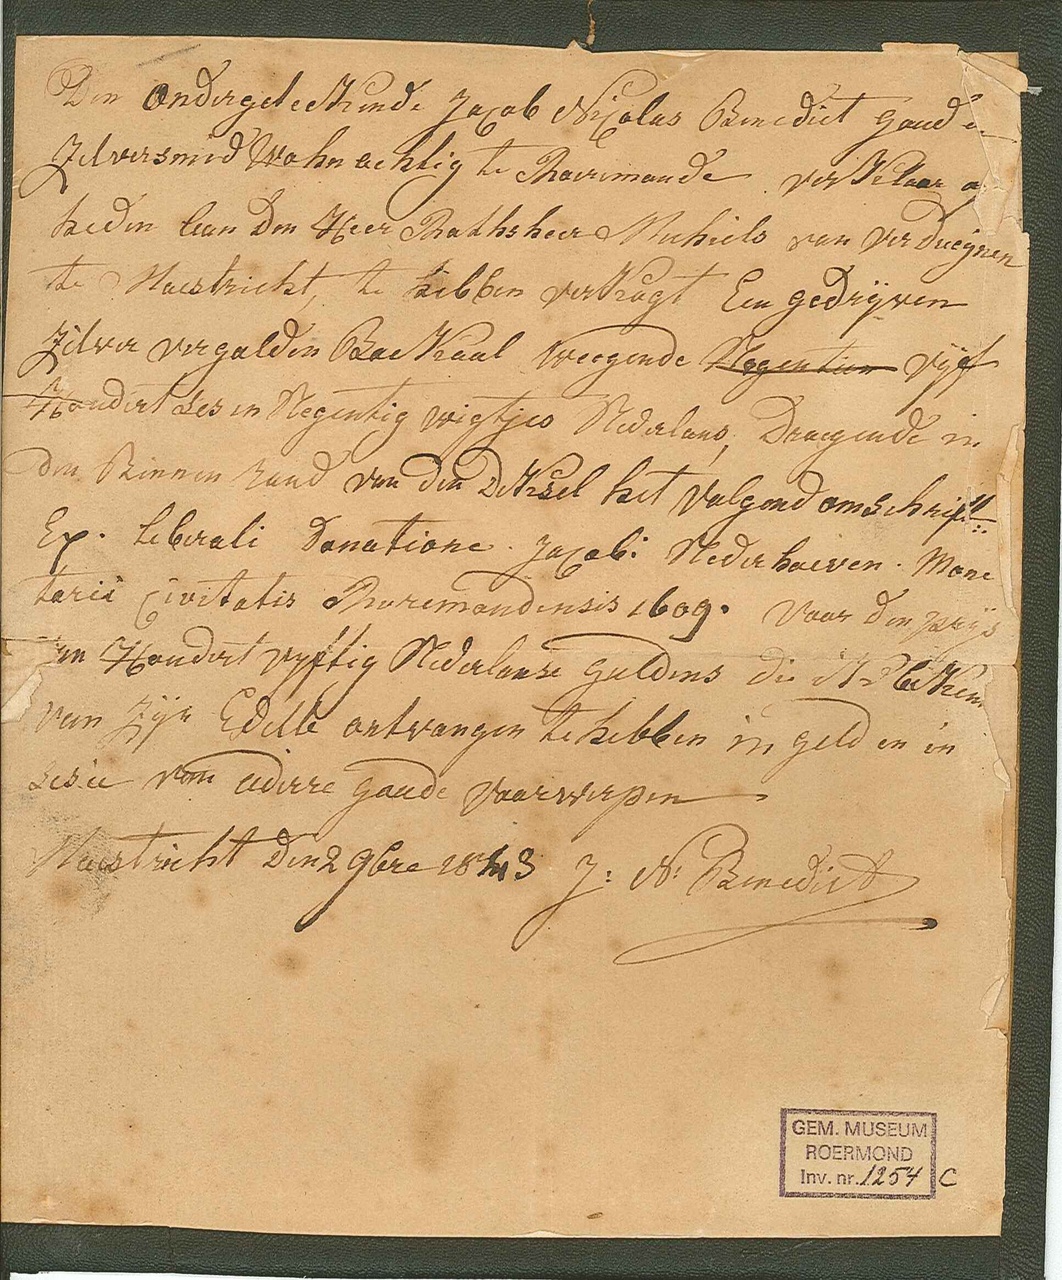 Den Ondergeteekende Jacob Nicolas Benedict goud en
Zilversmid Wohnachtig te Roeremonde verklaar
heden aan Den Heer Rathsheer Michiels van Verduynen
te Maestricht, te hebben verkogt Een gedrijven
Zilver vergulden Bockaal weegende Negentien vijf
Hondert ses en Negentig wigtjes Nederlans, Draegende in
den Binnen rand van den Deksel het volgend omschrift:
Ex. liberali Donatione. Jacobi Nederhoeven. Mone
tarii Civitatis Ruremondensis 1609. voor den prys
van Hondert vyftig Nederlanse guldens die ik bekenne
van zijn Edelle ontvangen te hebben in geld en in
van andere goude voorwerpen
Maestricht den 2 9bre 1843 J: N: Benedict
GEM. MUSEUM
ROERMOND
Inv. nr. 1254 C